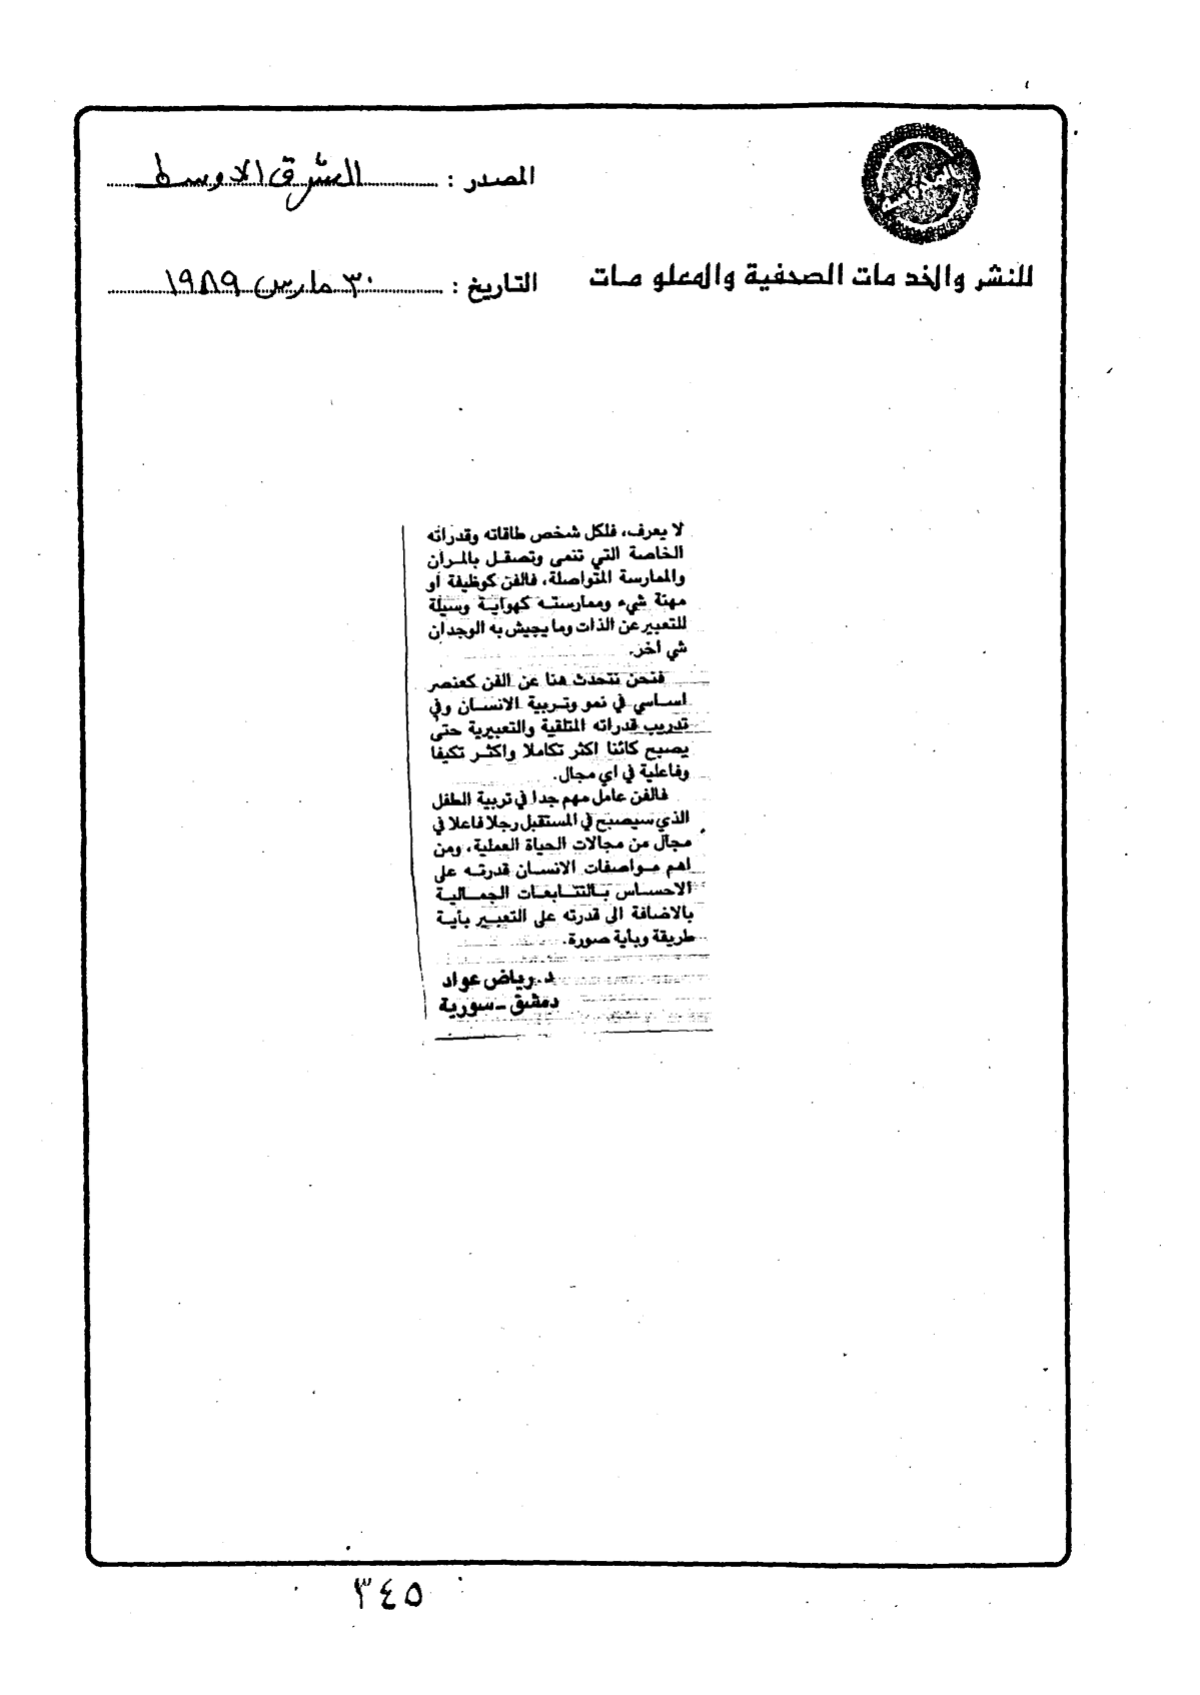 المصدر : الشرق الاوسط
للنشر والخدمات الصحفية والمعلومات
التاريخ : ٣٠ مارس ١٩٨٩
لا يعرف، فلكل شخص طاقاته وقدراته
الخاصة التي تنمى وتصقل بالمران
والممارسة المتواصلة، فالفن كوظيفة أو
مهنة شيء وممارسته كهواية وسيلة
للتعبير عن الذات وما يجيش به الوجدان
شي اخر.
فنحن نتحدث هنا عن الفن كعنصر
اساسي في نمو وتربية الانسان وفي
تدريب قدراته المتلقية والتعبيرية حتى
يصبح كائنا اكثر تكاملا واكثر تكيفا
وفاعلية في اي مجال.
فالفن عامل مهم جدا في تربية الطفل
الذي سيصبح في المستقبل رجلا فاعلا في
مجال من مجالات الحياة العملية، ومن
اهم مواصفات الانسان قدرته على
الاحساس بالتتابعات الجمالية
بالاضافة الى قدرته على التعبير بأية
طريقة وبأية صورة.
د. رياض عواد
دمشق - سورية
٣٤٥